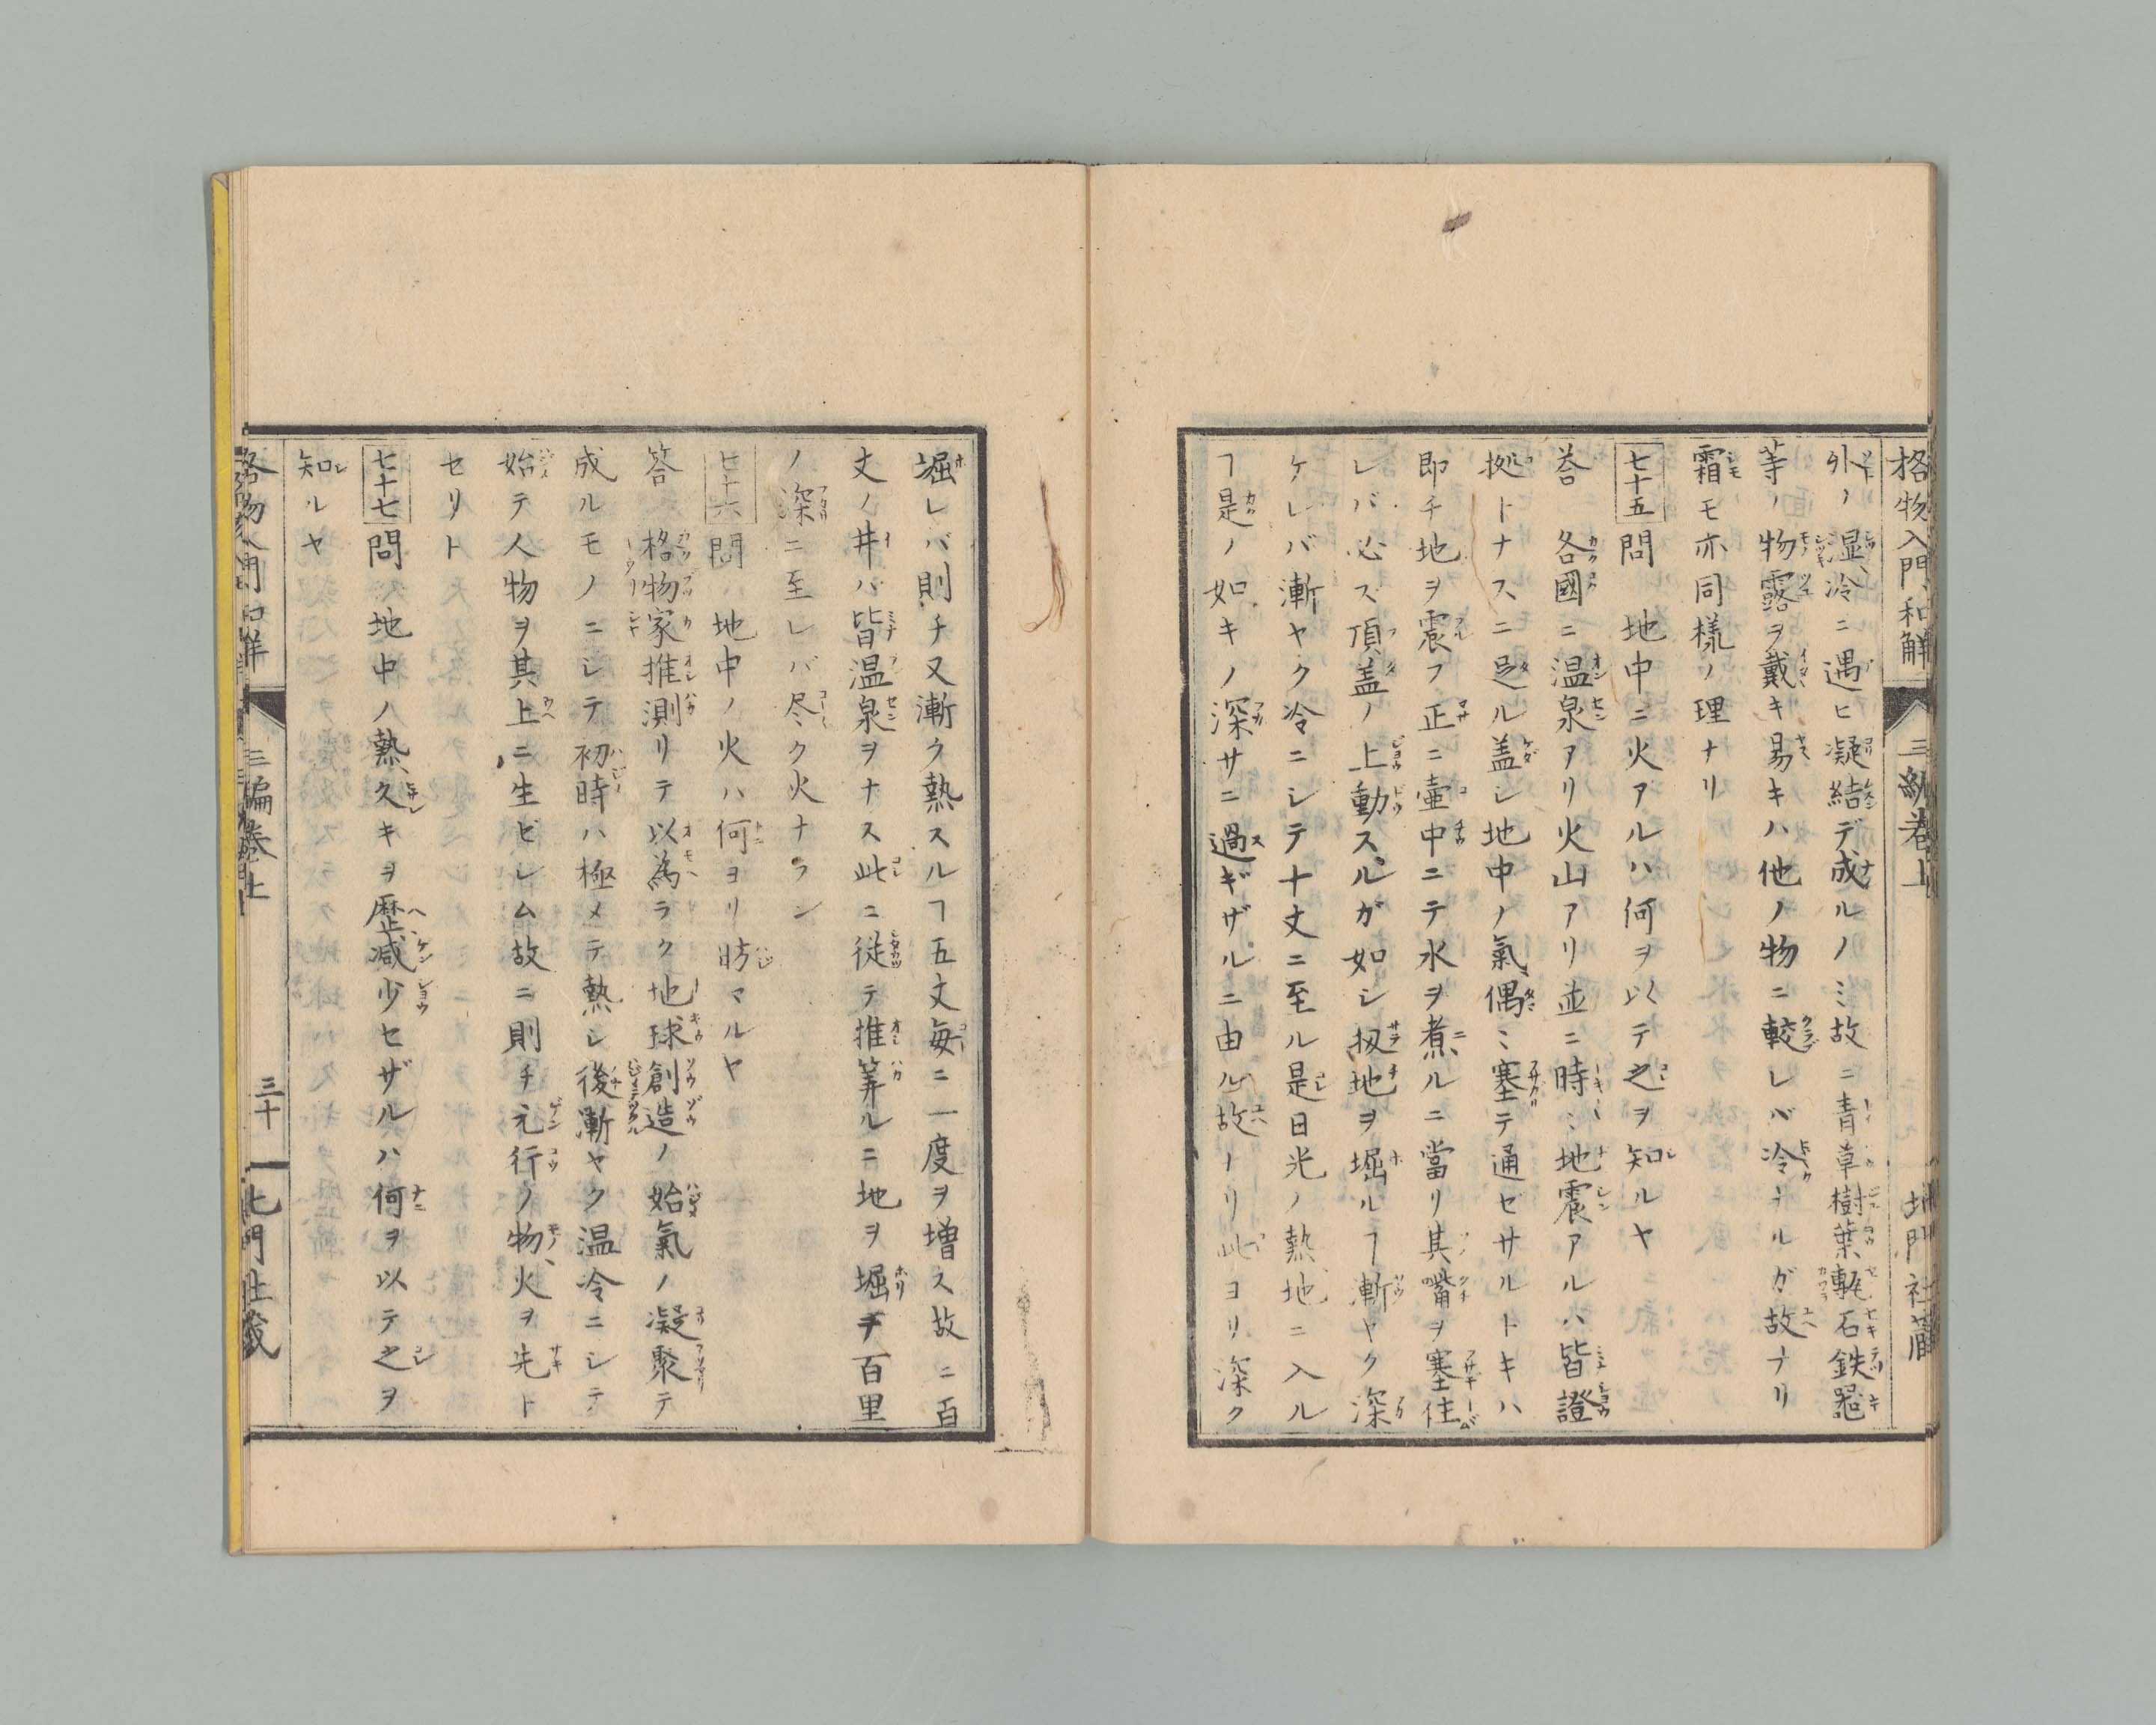 格物入門和解 三編卷上 北門社蔵
外ノ湿冷ニ遇ヒ凝結デ成ルノミ故ニ青草樹葉甎石鉄器
等ノ物露ヲ戴キ易キハ他ノ物ニ較レバ冷ナルガ故ナリ
霜モ亦同様ノ理ナリ
七十五 問 地中ニ火アルハ何ヲ以テ之ヲ知ルヤ
荅 各國ニ温泉アリ火山アリ並ニ時ミ地震アルハ皆證
拠トナスニ足ル盖シ地中ノ氣偶ミ塞テ通ゼサルトキハ
即チ地ヲ震フ正ニ壷中ニテ水ヲ煮ルニ當リ其嘴ヲ塞住
レバ必ス頂盖ノ上動スルガ如シ扱地ヲ堀ルヿ漸ヤク深
ケレバ漸ヤク冷ニシテ十丈ニ至ル是日光ノ熱地ニ入ル
ヿ是ノ如キノ深サニ過ギザルニ由ル故ノリ此ヨリ深ク
堀レバ則チ又漸ク熱スルヿ五丈毎ニ一度ヲ増ス故ニ百
丈ノ井バ皆温泉ヲナス此ニ従テ推筭ルニ地ヲ堀テ百里
ノ深ニ至レバ尽ク火ナラン
七十六 問 地中ノ火ハ何ヨリ昉マルヤ
答 格物家推測リテ以為ラク地球創造ノ始氣ノ凝聚テ
成ルモノニシテ初時ハ極メテ熱シ後漸ヤク温冷ニシテ
始テ人物ヲ其上ニ生ゼシム故ニ則チ元行ノ物火ヲ先ト
セリト
七十七 問 地中ノ熱久キヲ歴減少セザルハ何ヲ以テ之ヲ
知ルヤ
格物入門和解 三編卷上 三十 北門社蔵